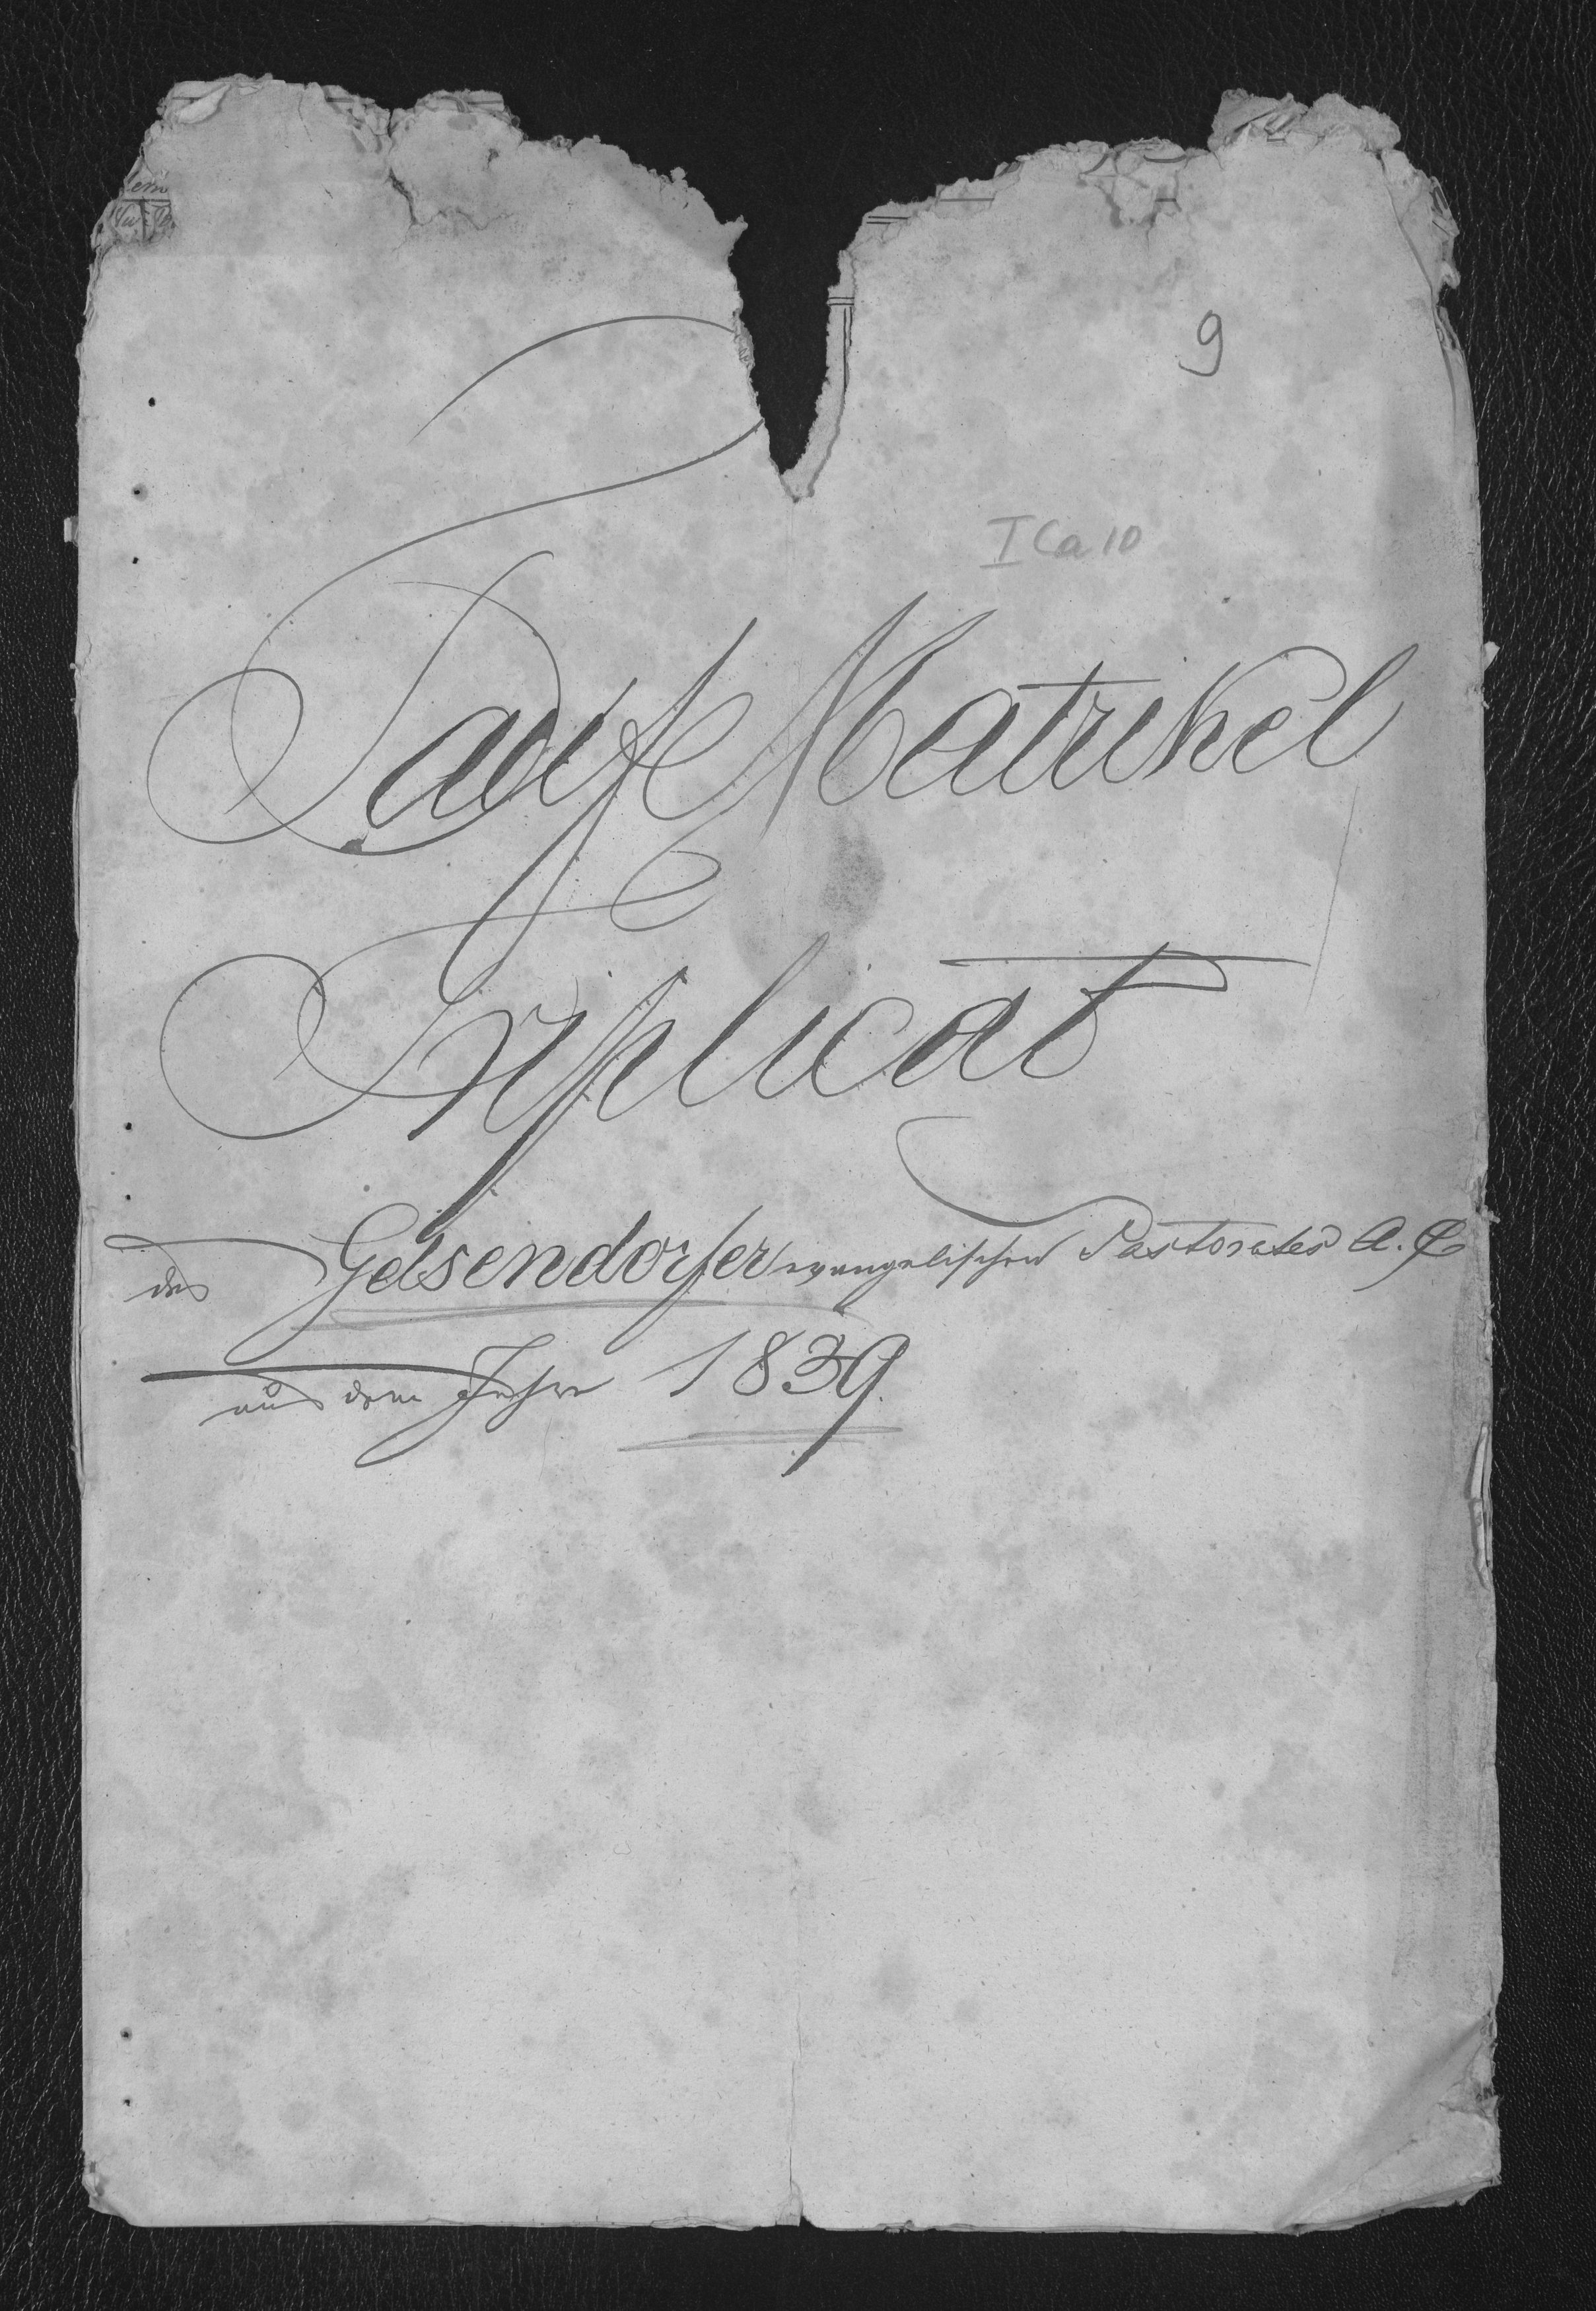 9
I Ca 10
Tauf Matrikel
Triplicat
des Gelsendorfer evangelischen Pastorates A. C
aus dem Jahre 1839.